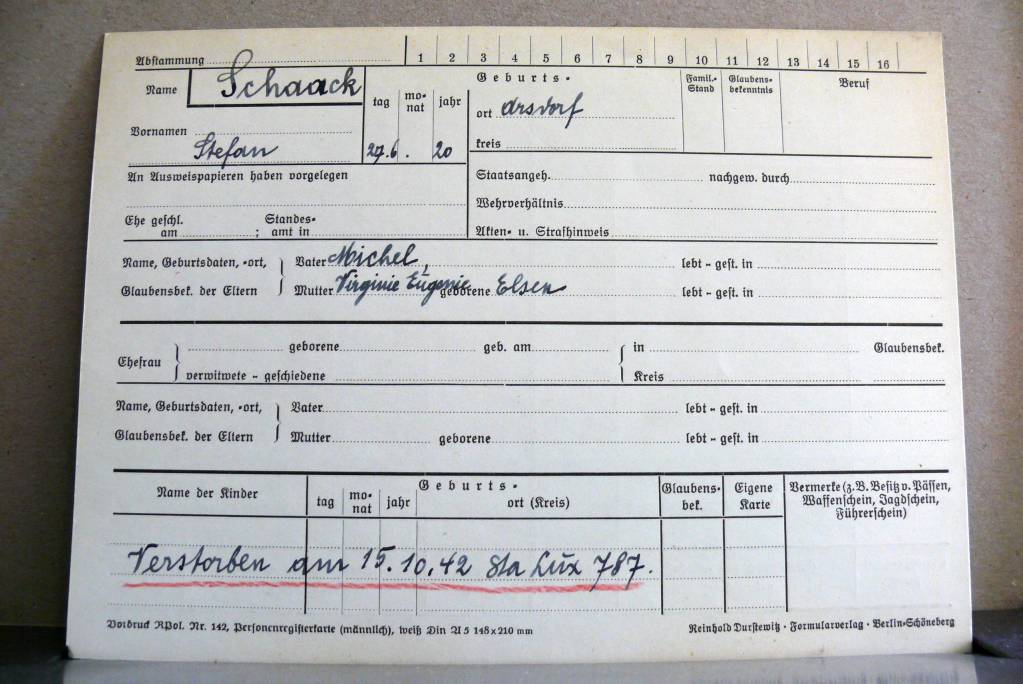 Abstammung 1 2 3 4 5 6 7 8 9 10 11 12 13 14 15 16
Name Schaack
Vornamen Stefan
tag monat jahr
27. 6. 20
Geburts-
ort Arsdorf
kreis
Famil.-Stand
Glaubens-bekenntnis
Beruf
An Ausweispapieren haben vorgelegen
Staatsangeh. nachgew. durch
Wehrverhältnis
Ehe geschl. am ; Standes-amt in
Akten- u. Strafhinweis
Name, Geburtsdaten, -ort, Vater Michel, lebt - gest. in
Glaubensbek. der Eltern Mutter Virginie Eugenie geborene Elsen lebt - gest. in
Ehefrau geborene geb. am in Glaubensbek.
verwitwete - geschiedene Kreis
Name, Geburtsdaten, -ort, Vater lebt - gest. in
Glaubensbek. der Eltern Mutter geborene lebt - gest. in
Name der Kinder
Geburts-
tag monat jahr ort (Kreis)
Glaubens-bek.
Eigene Karte
Vermerke (z. B. Besitz v. Pässen,
Waffenschein, Jagdschein,
Führerschein)
Verstorben am 15.10.42 Sta Lux 787.
Vordruck RPol. Nr. 142, Personenregisterkarte (männlich), weiß Din A 5 148 x 210 mm
Reinhold Durstewitz · Formularverlag · Berlin-Schöneberg